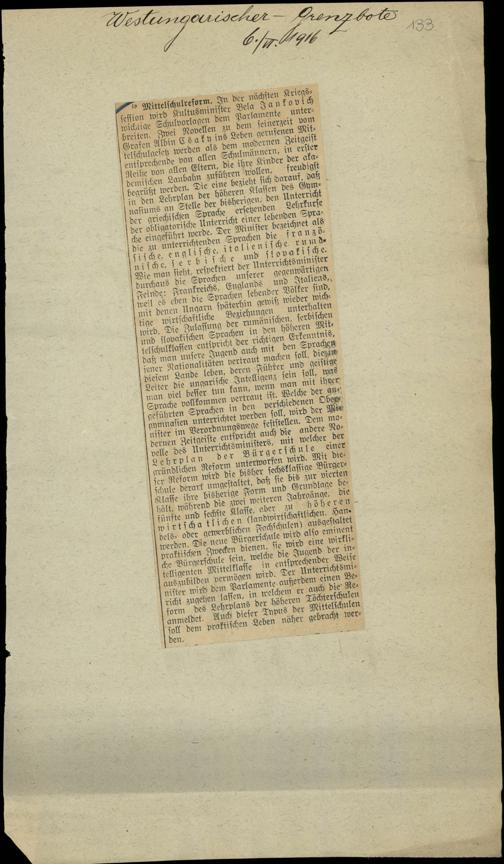 Westungarischer - Grenzbote
133
6./VI. 1916
Mittelschulreform. In der nächsten Kriegs-
session wird Kultusminister Bela Jankovich
wichtige Schulvorlagen dem Parlamente unter-
breiten. Zwei Novellen zu dem seinerzeit vom
Grafen Albin Csaky ins Leben gerufenen Mit-
telschulgesetz werden als dem modernen Zeitgeist
entsprechende von allen Schulmännern, in erster
Reihe von allen Eltern, die ihre Kinder der aka-
demischen Laubahn zuführen wollen, freudigst
begrüßt werden. Die eine bezieht sich darauf, daß
in den Lehrplan der höheren Klassen des Gym-
nasiums an Stelle der bisherigen, den Unterricht
der griechischen Sprache ersetzenden Lehrkurse
der obligatorische Unterricht einer lebenden Spra-
che eingeführt werde. Der Minister bezeichnet als
die zu unterrichtenden Sprachen die franzö-
sische, englische, italienische rumä-
nische, serbische und slovakische.
Wie man sieht, respektiert der Unterrichtsminister
durchaus die Sprachen unserer gegenwärtigen
Feinde: Frankreichs, Englands und Italiens,
weil es eben die Sprachen lebender Völker sind,
mit denen Ungarn späterhin gewiß wieder wich-
tige wirtschaftliche Beziehungen unterhalten
wird. Die Zulassung der rumänischen, serbischen
und slovakischen Sprachen in den höheren Mit-
telschulklassen entspricht der richtigen Erkenntnis,
daß man unsere Jugend auch mit den Sprachen
jener Nationalitäten vertraut machen soll, die in
diesem Lande leben, deren Führer und geistige
Leiter die ungarische Intelligenz sein soll, was
man viel besser tun kann, wenn man mit ihrer
Sprache vollkommen vertraut ist. Welche der an-
geführten Sprachen in den verschiedenen Ober-
gymnasien unterrichtet werden soll, wird der Mi-
nister im Verordnungswege feststellen. Dem mo-
dernen Zeitgeiste entspricht auch die andere No-
velle des Unterrichtsministers, mit welcher der
Lehrplan der Bürgerschule einer
gründlichen Reform unterworfen wird. Mit die-
ser Reform wird die bisher sechsklassige Bürger-
schule derart umgestaltet, daß sie bis zur vierten
Klasse ihre bisherige Form und Grundlage be-
hält, während die zwei weiteren Jahrgänge, die
fünfte und sechste Klasse, aber zu höheren
wirtschaftlichen (landwirtschaftlichen, Han-
dels- oder gewerblichen Fachschulen) ausgestaltet
werden. Die neue Bürgerschule wird also eminent
praktischen Zwecken dienen, sie wird eine wirkli-
che Bürgerschule sein, welche die Jugend der in-
telligenten Mittelklasse in entsprechender Weise
auszubilden vermögen wird. Der Unterrichtsmi-
nister wird dem Parlamente außerdem einen Be-
richt zugehen lassen, in welchem er auch die Re-
form des Lehrplans der höheren Töchterschulen
anmeldet. Auch dieser Typus der Mittelschulen
soll dem praktischen Leben näher gebracht wer-
den.